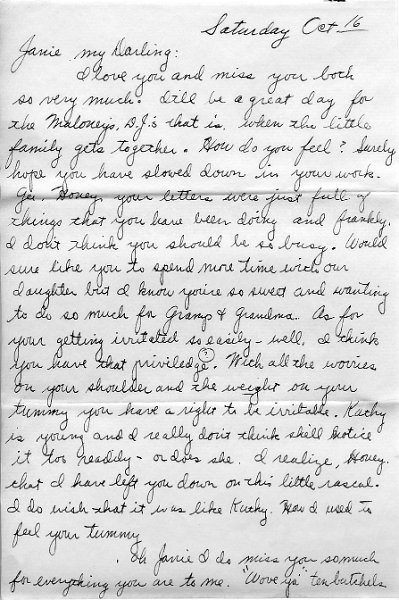 Saturday Oct 16
Janie my Darling:
I love you and miss you both
so very much. It'll be a great day for
the Maloneys, D.J.'s that is, when the little
family gets together. How do you feel? Surely
hope you have slowed down in your work.
Gee, Honey, your letters were just full of
things that you have been doing and frankly,
I don't think you should be so busy. Would
sure like you to spend more time with our
daughter but I know you're so sweet and wanting
to do so much for Gramp & Grandma. As for
your getting irritated so easily - well, I think
you have that priviledge(?). With all the worries
on your shoulder and the weight on your
tummy you have a right to be irritable. Kathy
is young and I really don't think she'll notice
it too readily - or does she. I realize, Honey,
that I have left you down on this little rascal.
I do wish that it was like Kathy. How I used to
feel your tummy
Oh Janie I do miss you so much
for everything you are to me. "Wove ya" ten butchels